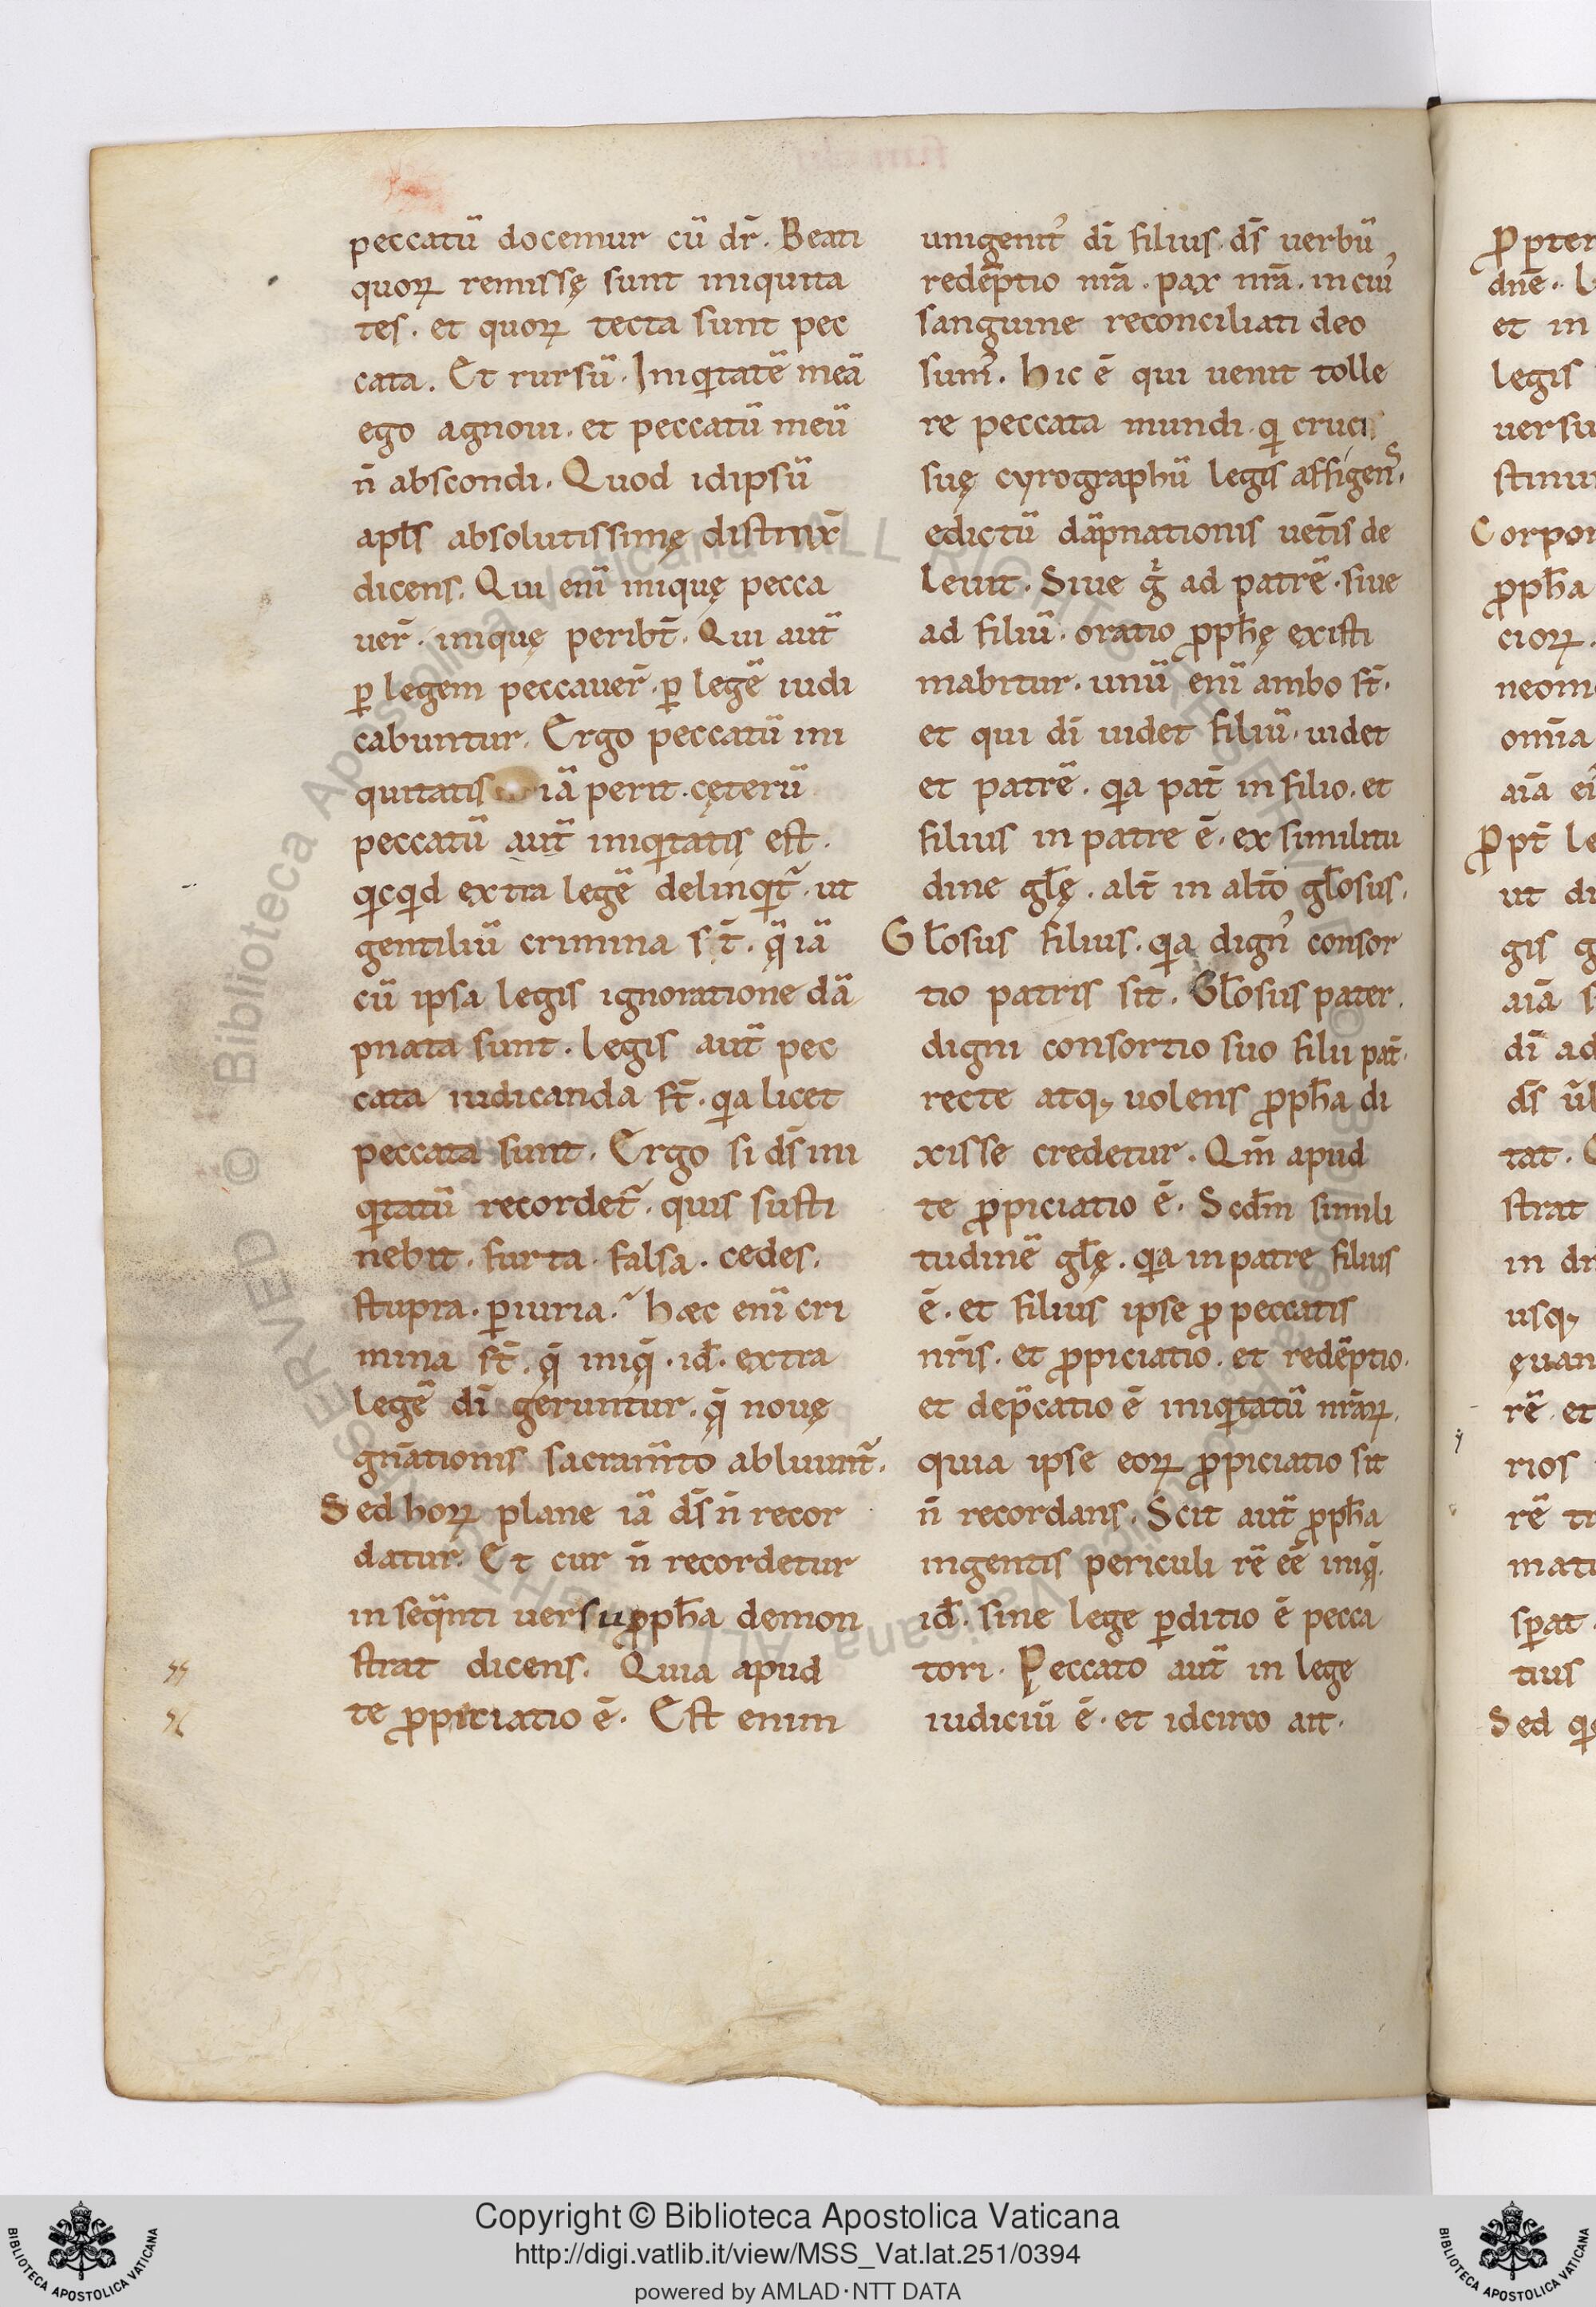 peccatū docemur cū dr̄. Beati
quoꝝ remissę sunt iniquita
tes. et quoꝝ tecta sunt pec
cata. Et rursū. Iniqͥtatē meā
ego agnoui. et peccatū meū
n̄ abscondi. Quod idipsū
apl̄s absolutissimę distinx̄
dicens. Qui enī iniquę pecca
uer̄. iniquę peribt̄. Qui aut̄
ꝑ legem peccauer̄. ꝑ legē iudi
cabuntur. Ergo peccatū ini
quitatis iā perit. cęterū
peccatū aut̄ iniqͥtatis est.
qͥcqͥd extra legē delinqͥt᷑. ut
gentiliū crimina st̄. q̄ iā
cū ipsa legis ignoratione dā
pnata sunt. legis aut̄ pec
cata iudicanda st̄. qͥa licet
peccata sunt. Ergo si ds̄ ini
qͥtatū recordet᷑. quis susti
nebit. furta. falsa. cedes.
stupra. ꝑiuria. hæc enī cri
mina st̄. q̄ iniq̄. id̄. extra
legē dī geruntur. q̄ nouę
gnātionis sacram̄to abluunt᷑.
Sed hoꝝ plane iā ds̄ n̄ recor
datur. Et cur n̄ recordetur
in seqͣnti uersu ꝓph̄a demon
strat dicens. Quia apud
te ꝓpitiatio ē. Est enim
unigenitꝰ dī filius. ds̄ uerbū
redēptio nr̄a. pax nr̄a. in cuiꝰ
sanguine reconciliati deo
sumꝰ. Hic ē qui uenit tolle
re peccata mundi. qͥ crucis
suę cyrographū legis affigens.
edictū dāpnationis uet̄is de
leuit. Siue g̊ ad patrē. siue
ad filiū. oratio ꝓph̄ę existi
mabitur. unū enī ambo st̄.
et qui dī uidet filiū. uidet
et patrē. qͥa pat̄ in filio. et
filius in patre ē. ex similitu
dine gl̄ę. alt̄ in alt̄o gl̄osus.
Gl̄osus filius. qͥa dignꝰ consor
tio patris sit. Gl̄osus pater.
digni consortio suo filii pat̄.
recte atqꝫ uolens ꝓph̄a di
xisse credetur. Qm̄ apud
te ꝓpiciatio ē. Scdm̄ simili
tudinē gl̄ę. qͥa in patre filius
ē. et filius ipse ꝓ peccatis
nr̄is. et ꝓpiciatio. et redēptio.
et dep̄catio ē iniqͥtatū nr̄aꝝ.
quia ipse eoꝝ ꝓpiciatio sit
n̄ recordans. Scit aut̄ ꝓph̄a
ingentis periculi rē eē iniq̄.
id̄. sine lege ꝑditio ē pecca
tori. Peccato aut̄ in lege
iudiciū ē. et idcirco ait.
ꝓpter
dn̄e. 
et in
legis
uersu
stinu
Corpor
ꝓph̄a
cioꝝ.
neom
om̄ia
aīa
ꝓpt̄ le
ut di
gis g
aīa s
dī ad
ds̄
tat.
strat
in
usqꝫ
ęuan
rē et
rios
rē tr
mati
sꝑat
tius
Sed qͥ
Copyright © Biblioteca Apostolica Vaticana
http://digi.vatlib.it/view/MSS_Vat.lat.251/0394
powered by AMLAD·NTT DATA
BIBLIOTECA APOSTOLICA VATICANA
BIBLIOTECA APOSTOLICA VATICANA